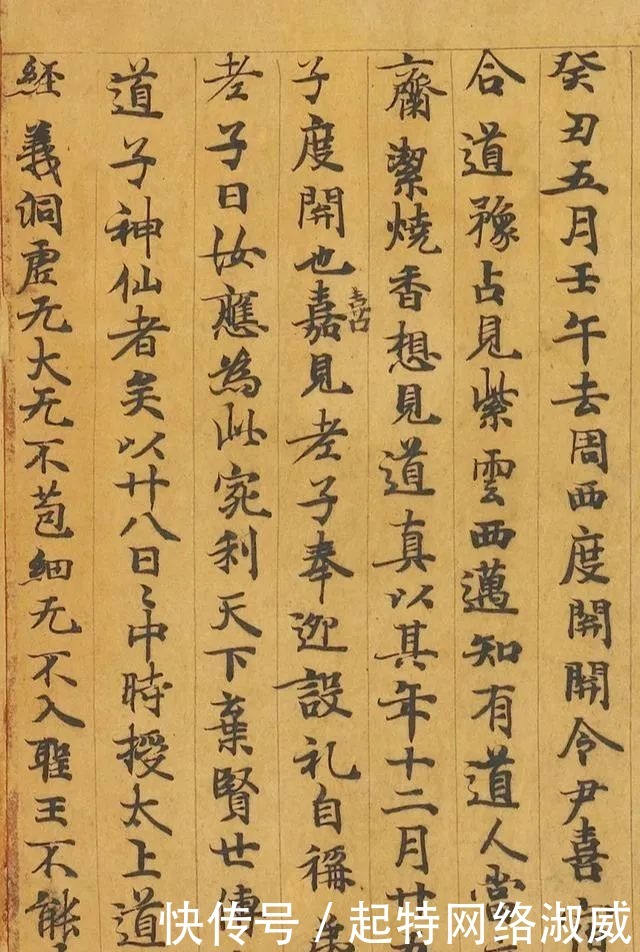 癸丑五月壬午去周西度関関令尹喜
合道豫占見紫雲西邁知有道人當
齋潔燒香想見道真以其年十二月廿
子度関也嘉喜見老子奉迎設礼自稱弟
老子曰汝應為此宛利天下棄賢世傳
道子神仙者矣以廿八日〻中時授太上道
經義洞虛无大无不苞細无不入聖王不能
快传号／起特网络淑威